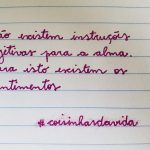 não existem instruções
jetivas para a alma.
ara isto existem os
ntimentos
#coisinhasdavida